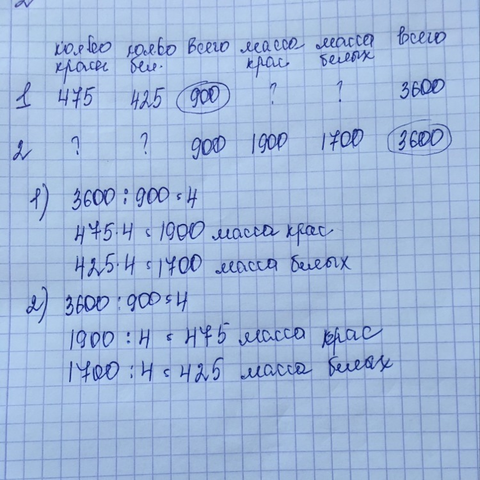 кол-во кол-во всего масса масса всего
красн бел. крас. белых
1 475 425 900 ? ? 3600
2 ? ? 900 1900 1700 3600
1) 3600 : 900 = 4
475 · 4 = 1900 масса крас
425 · 4 = 1700 масса белых
2) 3600 : 900 = 4
1900 : 4 = 475 масса крас
1700 : 4 = 425 масса белых